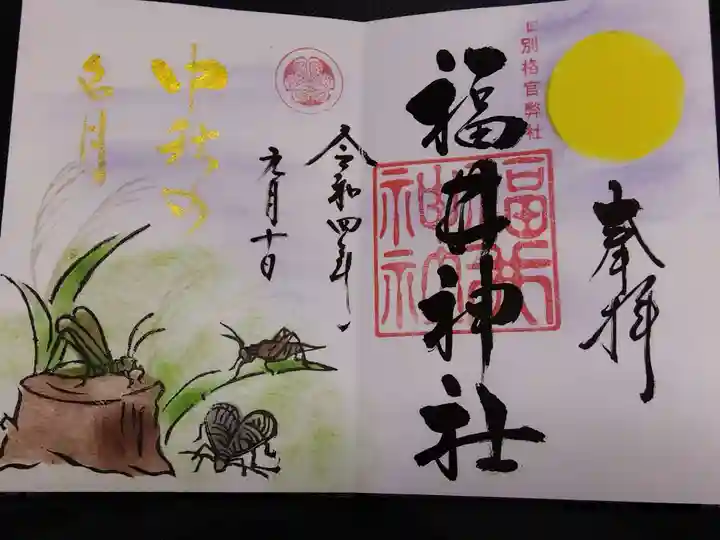 奉拝
旧別格官弊社
福井神社
令和四年
九月十日
中秋の
名月